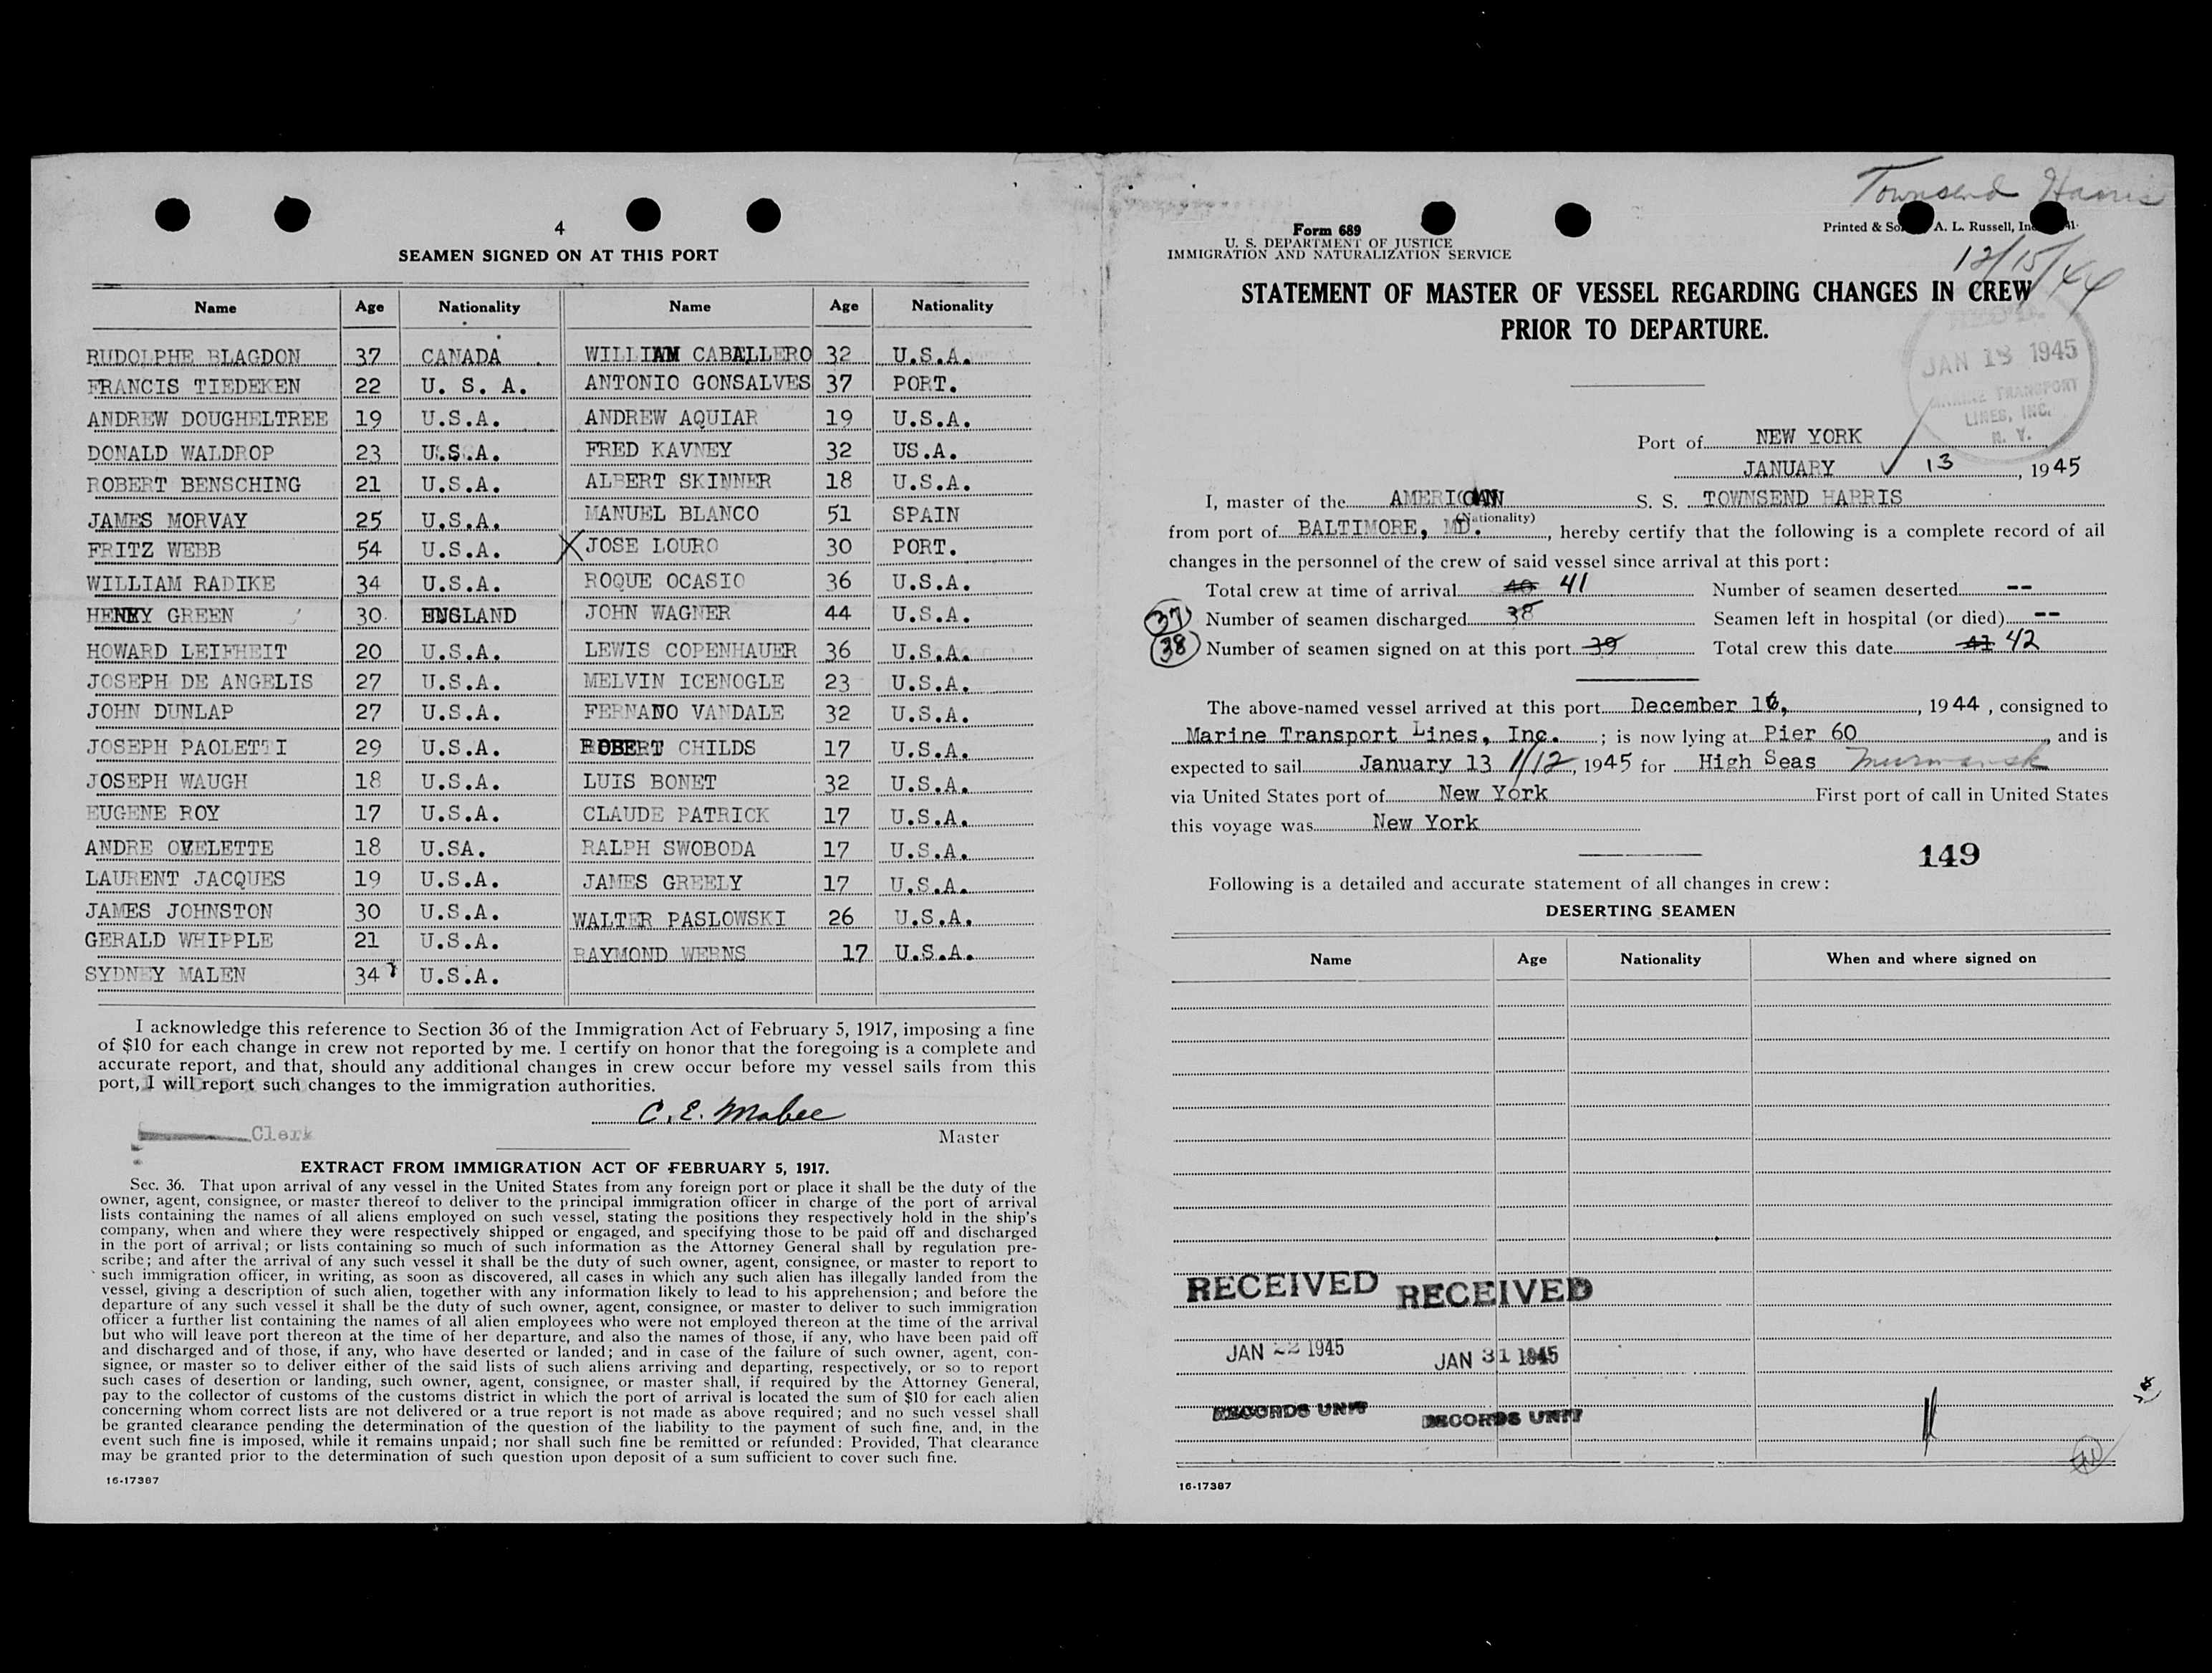 4
SEAMEN SIGNED ON AT THIS PORT
Name Age Nationality Name Age Nationality
RUDOLPHE BLAGDON 37 CANADA WILLIAM CABALLERO 32 U.S.A.
FRANCIS TIEDEKEN 22 U. S. A. ANTONIO GONSALVES 37 PORT.
ANDREW DOUGHELTREE 19 U.S.A. ANDREW AQUIAR 19 U.S.A.
DONALD WALDROP 23 U.S.A. FRED KAVNEY 32 US.A.
ROBERT BENSCHING 21 U.S.A. ALBERT SKINNER 18 U.S.A.
JAMES MORVAY 25 U.S.A. MANUEL BLANCO 51 SPAIN
FRITZ WEBB 54 U.S.A. X JOSE LOURO 30 PORT.
WILLIAM RADIKE 34 U.S.A. ROQUE OCASIO 36 U.S.A.
HENRY GREEN 30 ENGLAND JOHN WAGNER 44 U.S.A.
HOWARD LEIFHEIT 20 U.S.A. LEWIS COPENHAUER 36 U.S.A.
JOSEPH DE ANGELIS 27 U.S.A. MELVIN ICENOGLE 23 U.S.A.
JOHN DUNLAP 27 U.S.A. FERNANO VANDALE 32 U.S.A.
JOSEPH PAOLETTI 29 U.S.A. ROBERT CHILDS 17 U.S.A.
JOSEPH WAUGH 18 U.S.A. LUIS BONET 32 U.S.A.
EUGENE ROY 17 U.S.A. CLAUDE PATRICK 17 U.S.A.
ANDRE OVELETTE 18 U.SA. RALPH SWOBODA 17 U.S.A.
LAURENT JACQUES 19 U.S.A. JAMES GREELY 17 U.S.A.
JAMES JOHNSTON 30 U.S.A. WALTER PASLOWSKI 26 U.S.A.
GERALD WHIPPLE 21 U.S.A. RAYMOND WERNS 17 U.S.A.
SYDNEY MALEN 34 U.S.A.
I acknowledge this reference to Section 36 of the Immigration Act of February 5, 1917, imposing a fine
of $10 for each change in crew not reported by me. I certify on honor that the foregoing is a complete and
accurate report, and that, should any additional changes in crew occur before my vessel sails from this
port, I will report such changes to the immigration authorities.
C. E. Mabee
Clerk
Master
EXTRACT FROM IMMIGRATION ACT OF FEBRUARY 5, 1917.
Sec. 36. That upon arrival of any vessel in the United States from any foreign port or place it shall be the duty of the
owner, agent, consignee, or master thereof to deliver to the principal immigration officer in charge of the port of arrival
lists containing the names of all aliens employed on such vessel, stating the positions they respectively hold in the ship's
company, when and where they were respectively shipped or engaged, and specifying those to be paid off and discharged
in the port of arrival; or lists containing so much of such information as the Attorney General shall by regulation pre-
scribe; and after the arrival of any such vessel it shall be the duty of such owner, agent, consignee, or master to report to
such immigration officer, in writing, as soon as discovered, all cases in which any such alien has illegally landed from the
vessel, giving a description of such alien, together with any information likely to lead to his apprehension; and before the
departure of any such vessel it shall be the duty of such owner, agent, consignee, or master to deliver to such immigration
officer a further list containing the names of all alien employees who were not employed thereon at the time of the arrival
but who will leave port thereon at the time of her departure, and also the names of those, if any, who have been paid off
and discharged and of those, if any, who have deserted or landed; and in case of the failure of such owner, agent, con-
signee, or master so to deliver either of the said lists of such aliens arriving and departing, respectively, or so to report
such cases of desertion or landing, such owner, agent, consignee, or master shall, if required by the Attorney General,
pay to the collector of customs of the customs district in which the port of arrival is located the sum of $10 for each alien
concerning whom correct lists are not delivered or a true report is not made as above required; and no such vessel shall
be granted clearance pending the determination of the question of the liability to the payment of such fine, and, in the
event such fine is imposed, while it remains unpaid; nor shall such fine be remitted or refunded: Provided, That clearance
may be granted prior to the determination of such question upon deposit of a sum sufficient to cover such fine.
16-17387
Townsend Harris
Form 689
U. S. DEPARTMENT OF JUSTICE
IMMIGRATION AND NATURALIZATION SERVICE
Printed & A. L. Russell,
12/15/44
STATEMENT OF MASTER OF VESSEL REGARDING CHANGES IN CREW
PRIOR TO DEPARTURE.
REC'D.
JAN 13 1945
MARINE TRANSPORT
LINES, INC.
N. Y.
Port of NEW YORK
JANUARY 13, 1945
I, master of the AMERICAN S. S. TOWNSEND HARRIS
(Nationality)
from port of BALTIMORE, MD., hereby certify that the following is a complete record of all
changes in the personnel of the crew of said vessel since arrival at this port:
Total crew at time of arrival 40 41 Number of seamen deserted --
37 Number of seamen discharged 38 Seamen left in hospital (or died) --
38 Number of seamen signed on at this port 39 Total crew this date 41 42
The above-named vessel arrived at this port December 16, 1944, consigned to
Marine Transport Lines, Inc. ; is now lying at Pier 60, and is
expected to sail January 13 1/12, 1945 for High Seas Murmansk
via United States port of New York First port of call in United States
this voyage was New York
149
Following is a detailed and accurate statement of all changes in crew:
DESERTING SEAMEN
Name Age Nationality When and where signed on
RECEIVED RECEIVED
JAN 22 1945 JAN 31 1945
RECORDS UNIT RECORDS UNIT
16-17387